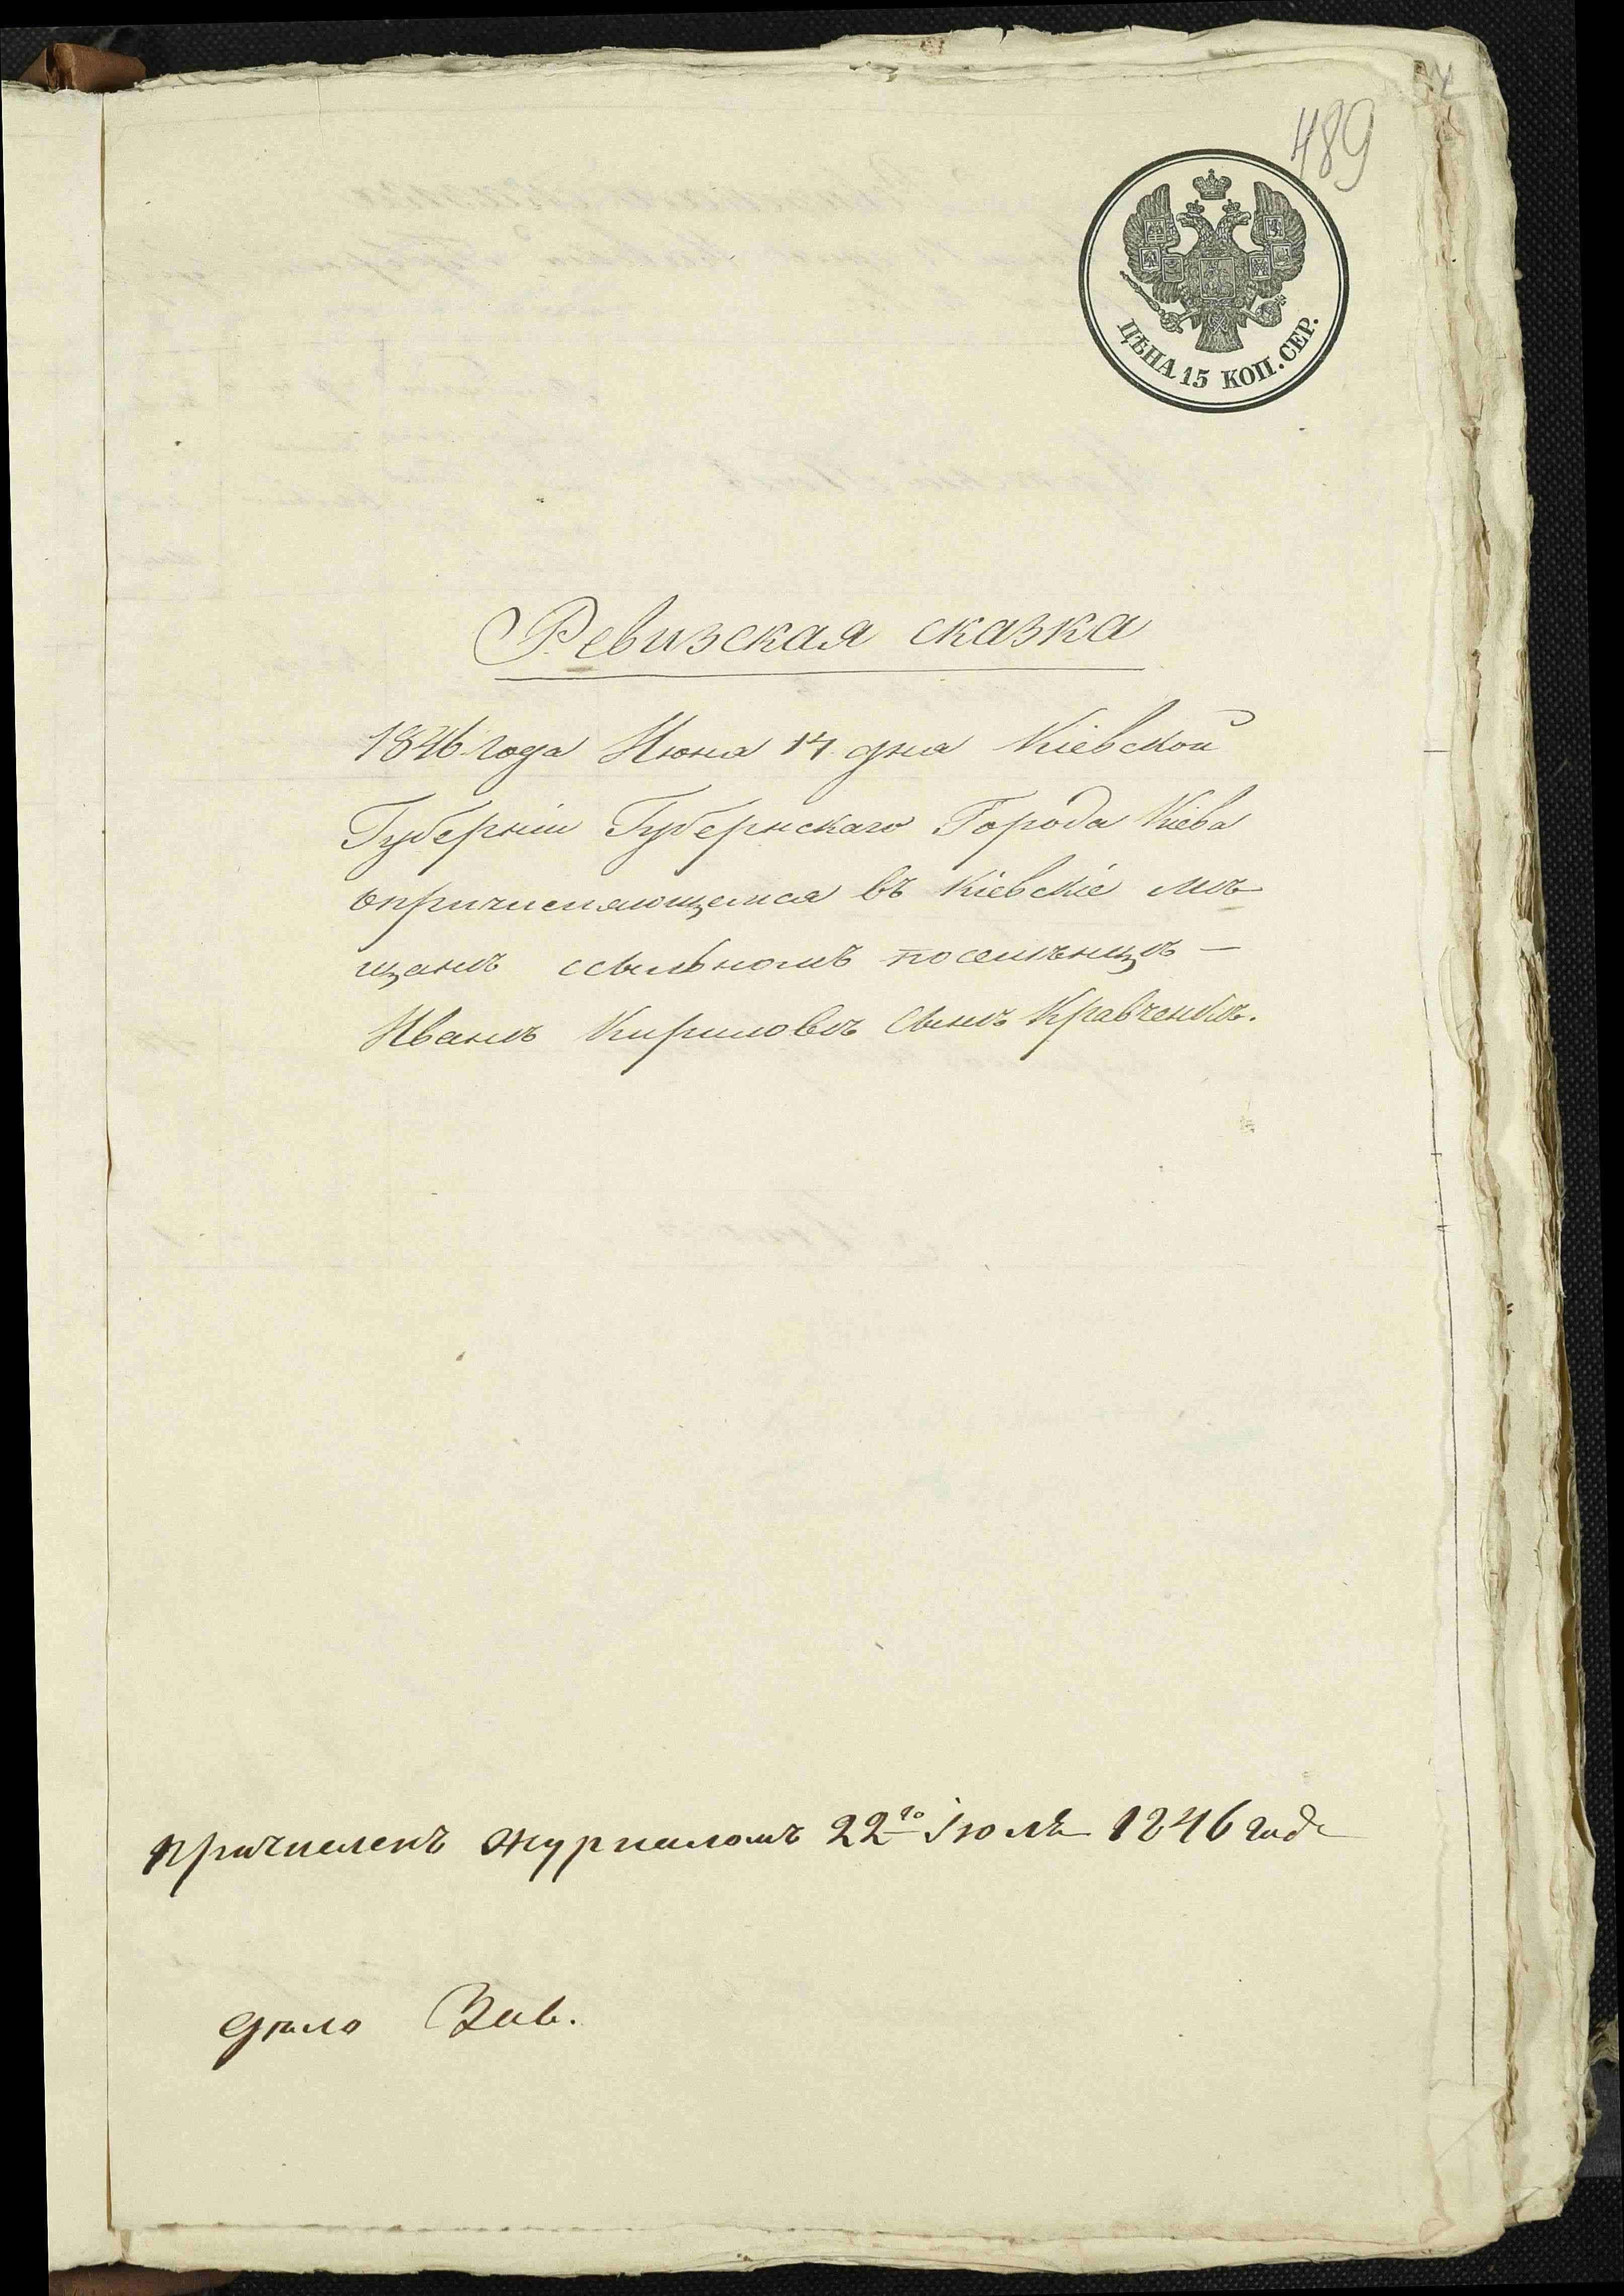 489
ЦѢНА 15 КОП. СЕР.
Ревизская сказка
1846 года Июня 14 дня Кіевской
Губерніи Губернскаго Города Кіева
опричисляющемся въ Кіевскіе мѣ
щанѣ ссыльномъ посельнцѣ —
Иванѣ Кириловѣ Сынѣ Кравченкѣ.
причисленъ журналомъ 22го іюля 1846 года
дѣло